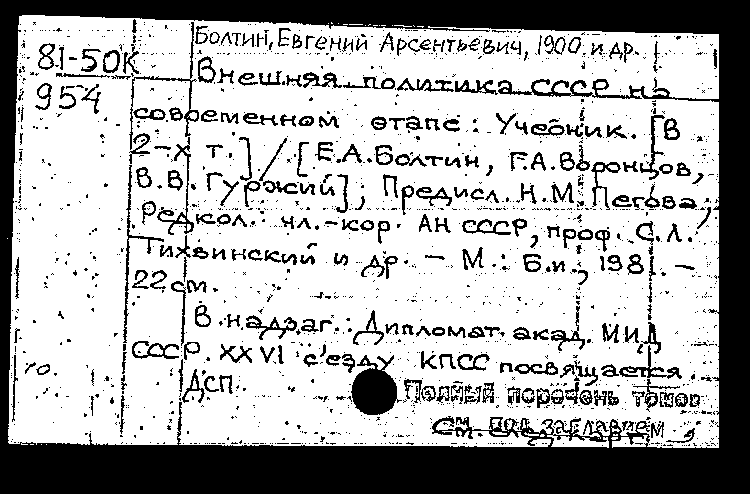 Болтин, Евгений Арсентьевич, 1900 и др.
81-50К
954
Внешняя политика СССР на
современном этапе: Учебник. [В
2-х т.] / [Е.А.Болтин, Г.А.Воронцов,
В.В.Гуржий]; Предисл. Н.М.Пегова;
Редкол.: чл.-кор. АН СССР, проф. С.Л.
Тихвинский и др. — М.: Б.и., 1981. —
22 см.
В надзаг.: Дипломат. акад. МИД
СССР. XXVI съезду КПСС посвящается.
ДСП.
Полный перечень томов
см. под заглавием
См. след. карт.